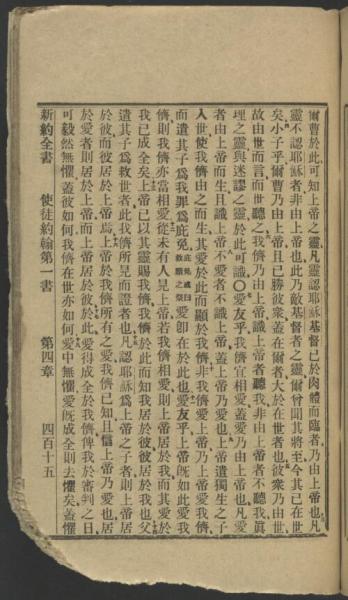 爾曹於此可知上帝之靈凡靈認耶穌基督已於肉體而臨者乃由上帝也凡
靈不認耶穌者非由上帝也此乃敵基督者之靈爾曾聞其將至今其已在世
矣小子乎爾曹乃由上帝且已勝彼衆蓋在爾者大於在世者也彼衆乃由世
故由世而言而世聽之我儕乃由上帝識上帝者聽我非由上帝者不聽我眞
理之靈與迷謬之靈於此可識〇愛友乎我儕宜相愛蓋愛乃由上帝也凡愛
者由上帝而生且識上帝不愛者不識上帝蓋上帝乃愛也上帝遣獨生之子
入世使我儕由之而生其愛於此而顯於我儕非我儕愛上帝乃上帝愛我儕
而遣其子爲我罪爲庇免庇免或曰敉願之祭愛卽在於此也愛友乎上帝旣如此愛我
儕則我儕亦當相愛從未有人見上帝若我儕相愛則上帝居於我而其愛於
我已成全矣上帝已以其靈賜我儕我儕於此而知我居於彼彼居於我也父
遣其子爲救世者此我儕所見而證者也凡認耶穌爲上帝之子者則上帝居
於彼而彼居於上帝焉上帝於我儕所有之愛我儕已知且信上帝乃愛也居
於愛者則居於上帝而上帝居於彼於此愛得成全於我儕俾我於審判之日
可毅然無懼蓋彼如何我儕在世亦如何愛中無懼愛旣成全則去懼矣蓋懼
新約全書 使徒約翰第一書 第四章 四百十五